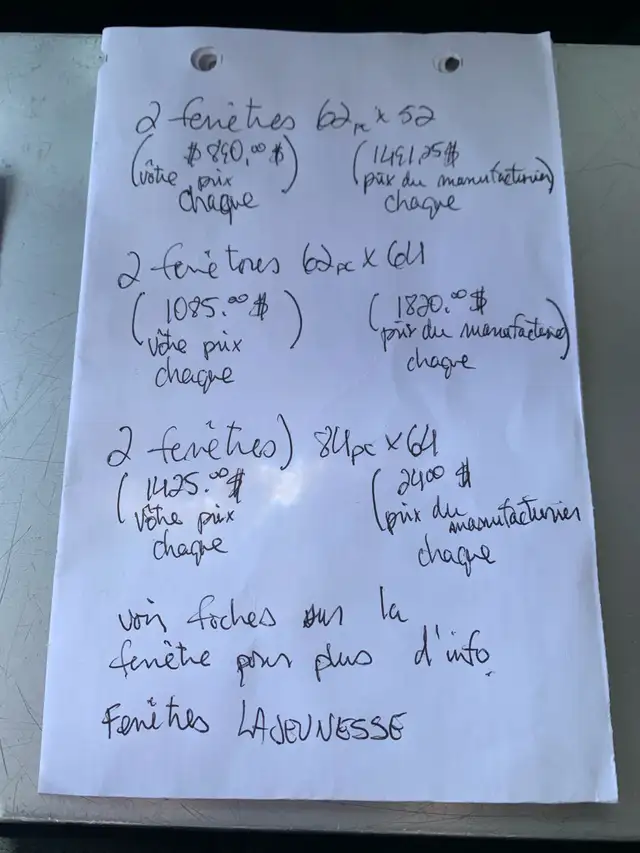 2 fenêtres 62pc x 52
( $ 890,00 $ ) (1491,25$
vôtre prix prix du manufacturier)
chaque chaque
2 fenêtres 62pc x 64
( 1085.00 $ ) ( 1820.00 $
vôtre prix prix du manufacturier)
chaque chaque
2 fenêtres) 84pc x 64
( 1425.00 $ ( 2400 $
vôtre prix prix du manufacturier
chaque chaque
voir fiches sur la
fenêtre pour plus d'info.
Fenêtres LAJEUNESSE